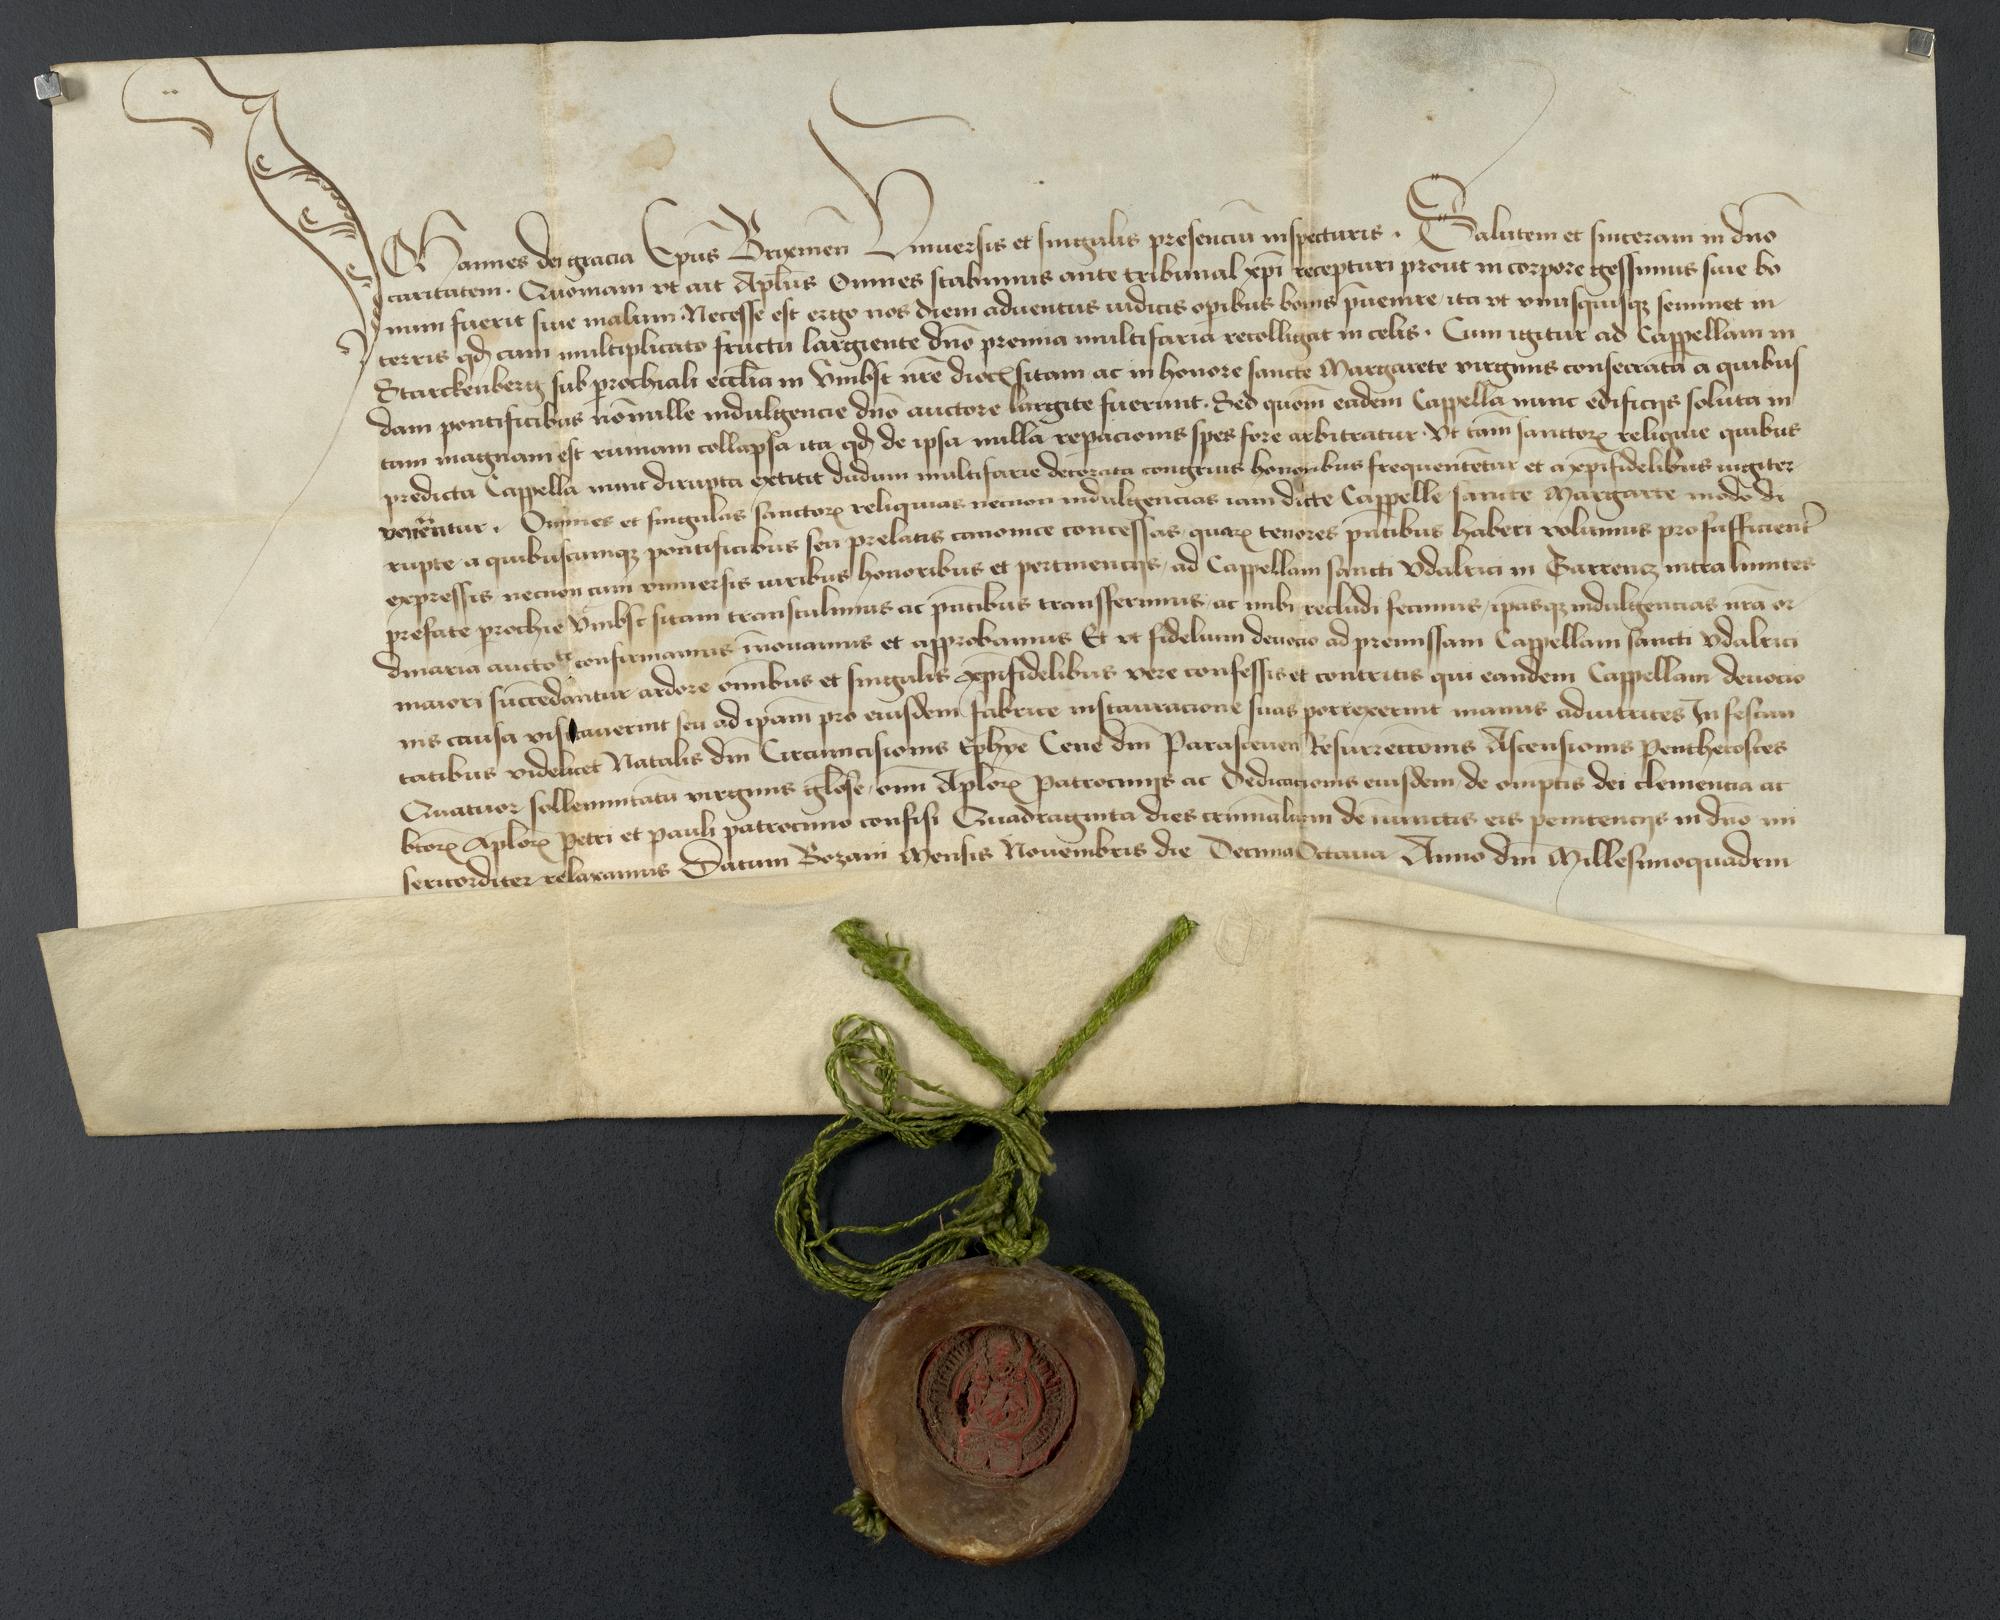 Johannes dei gracia Ep̄us Brixineñ Vniuersis et singulis presenciū inspecturis . Salutem et sinceram in dn̄o
caritatem . Quoniam vt ait Apl̄us Omnes stabimus ante tribunal xp̄i recepturi prout in corpore gessimus siue bo
num fuerit siue malum Necesse est ergo nos diem aduentus iudicis opibus bonis p̄uenire / ita vt vnusquisqꝫ seminet in
terris qd̄ cum multiplicato fructu largiente dn̄o premia multifaria recolligat in celis . Cum igitur ad Cappellam in
Starckenberg sub prochiali eccl̄ia in Vmbst nr̄e dioc̄ sitam ac in honore sancte Margarete virginis consecratā a quibus
dam pontificibus nōnulle indulgencie dn̄o auctore largite fuerunt . Sed quom̄ eadem Cappella nunc edificijs soluta in
tam magnam est ruinam collapsa ita qd̄ de ipsa nulla repacionis spes fore arbitratur . Vt tam̄ sanctorꝝ reliquie quibus
predicta Cappella nunc dirupta extitit dudum multifarie decorata congruis honoribus frequentētur et a xp̄ifidelibus iugiter
venērentur . Omnes et singulas sanctorꝝ reliquias necnon indulgencias iam dicte Cappelle sancte Margarete modo di
rupte a quibuscumqꝫ pontificibus seu prelatis canonice concessas quarꝝ tenores p̄ntibus haberi volumus pro sufficient̄
expressis necnon cum vniuersis iuribus honoribus et pertinencijs / ad Cappellam sancti Vdalrici in Tarrencz intra limites
prefate prochie Vmbst sitam transtulimus ac p̄ntibus transferimus / ac inibi recludi fecimus / ip̄asqꝫ indulgencias nr̄a or
dinaria aucto^te confirmamus īnouamus et approbamus Et vt fidelium deuocio ad premissam Cappellam sancti Vdalrici
maiori succēdantur ardore om̄ibus et singulis xp̄ifidelibus vere confessis et contritis qui eandem Cappellam deuocio
nis causa visitauerint seu ad ip̄am pro eiusdem fabrice instauracione suas porrexerint manus adiutrites In festiui
tatibus videlicet Natalis dn̄i Circumcisionis Ephyē Cene dn̄i Parasceuen Resurrectionis Ascensionis Penthecostes
Quatuor sollemnitatū virginis gl̄ose / om̄i Apl̄orꝝ Patrocinijs ac Dedicacionis eiusdem / de om̄ptis dei clemencia ac
bt̄orꝝ Apl̄orꝝ Petri et pauli patrocinio confisi Quadraginta dies criminaliū de iniunctis eis penitencijs in dn̄o mi
sericorditer relaxamus Datum Bozani Mensis Nouembris die Decima Octaua Anno dn̄i Millesimoquadrin